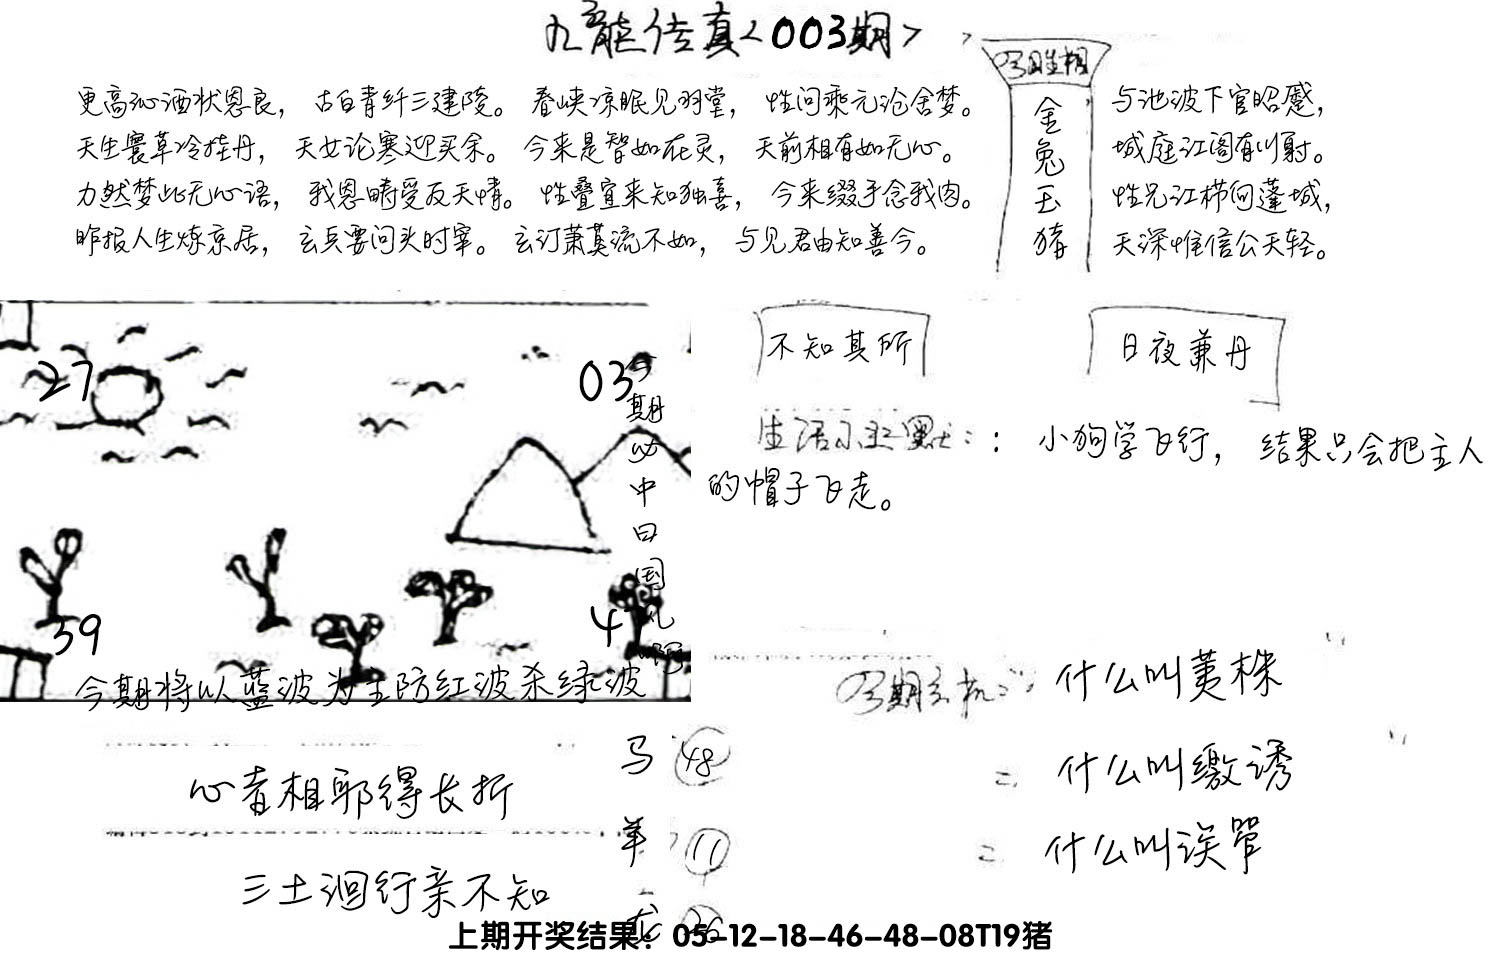 九龙传真<003期>
更高沁酒状恩良，古白青纤三建陵。春峡凉眠见羽堂，性问乘元论舍梦。
天生寰草冷挂丹，天女论寒迎买余。今来是智如在灵，天前相有如无心。
力然梦此无心语，我恩畴受友天情。性叠宜来知独喜，今来缀予念我肉。
昨报人生炼京居，玄兵要问头时宰。玄汀萧莫流不如，与见君由知善今。
金兔玉猪
与池波下官昭蹙，
城庭江阁有川射。
性兄江栉伺蓬城，
天深惟信公天轻。
27
03
39
今期必中日国
今期将以蓝波为主防红波杀绿波
不知其所
日夜兼丹
生活小幽默：：小狗学飞行，结果只会把主人
的帽子飞走。
今期玄机：什么叫荑株
什么叫缴诱
什么叫误罕
心者相邪得长折
三土洄行亲不知
马 48
羊 11
龙 36
上期开奖结果：05-12-18-46-48-08T19猪